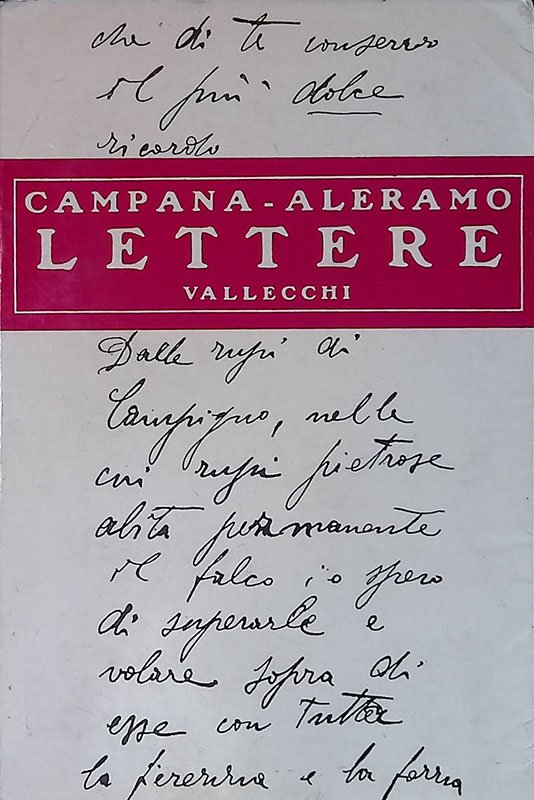 che di te conservo
il più dolce
ricordo
CAMPANA - ALERAMO
LETTERE
VALLECCHI
Dalle rupi di
Campigno, nelle
cui rupi pietrose
abita permanente
il falco io spero
di superarle e
volare sopra di
esse con tutta
la fierezza e la forza